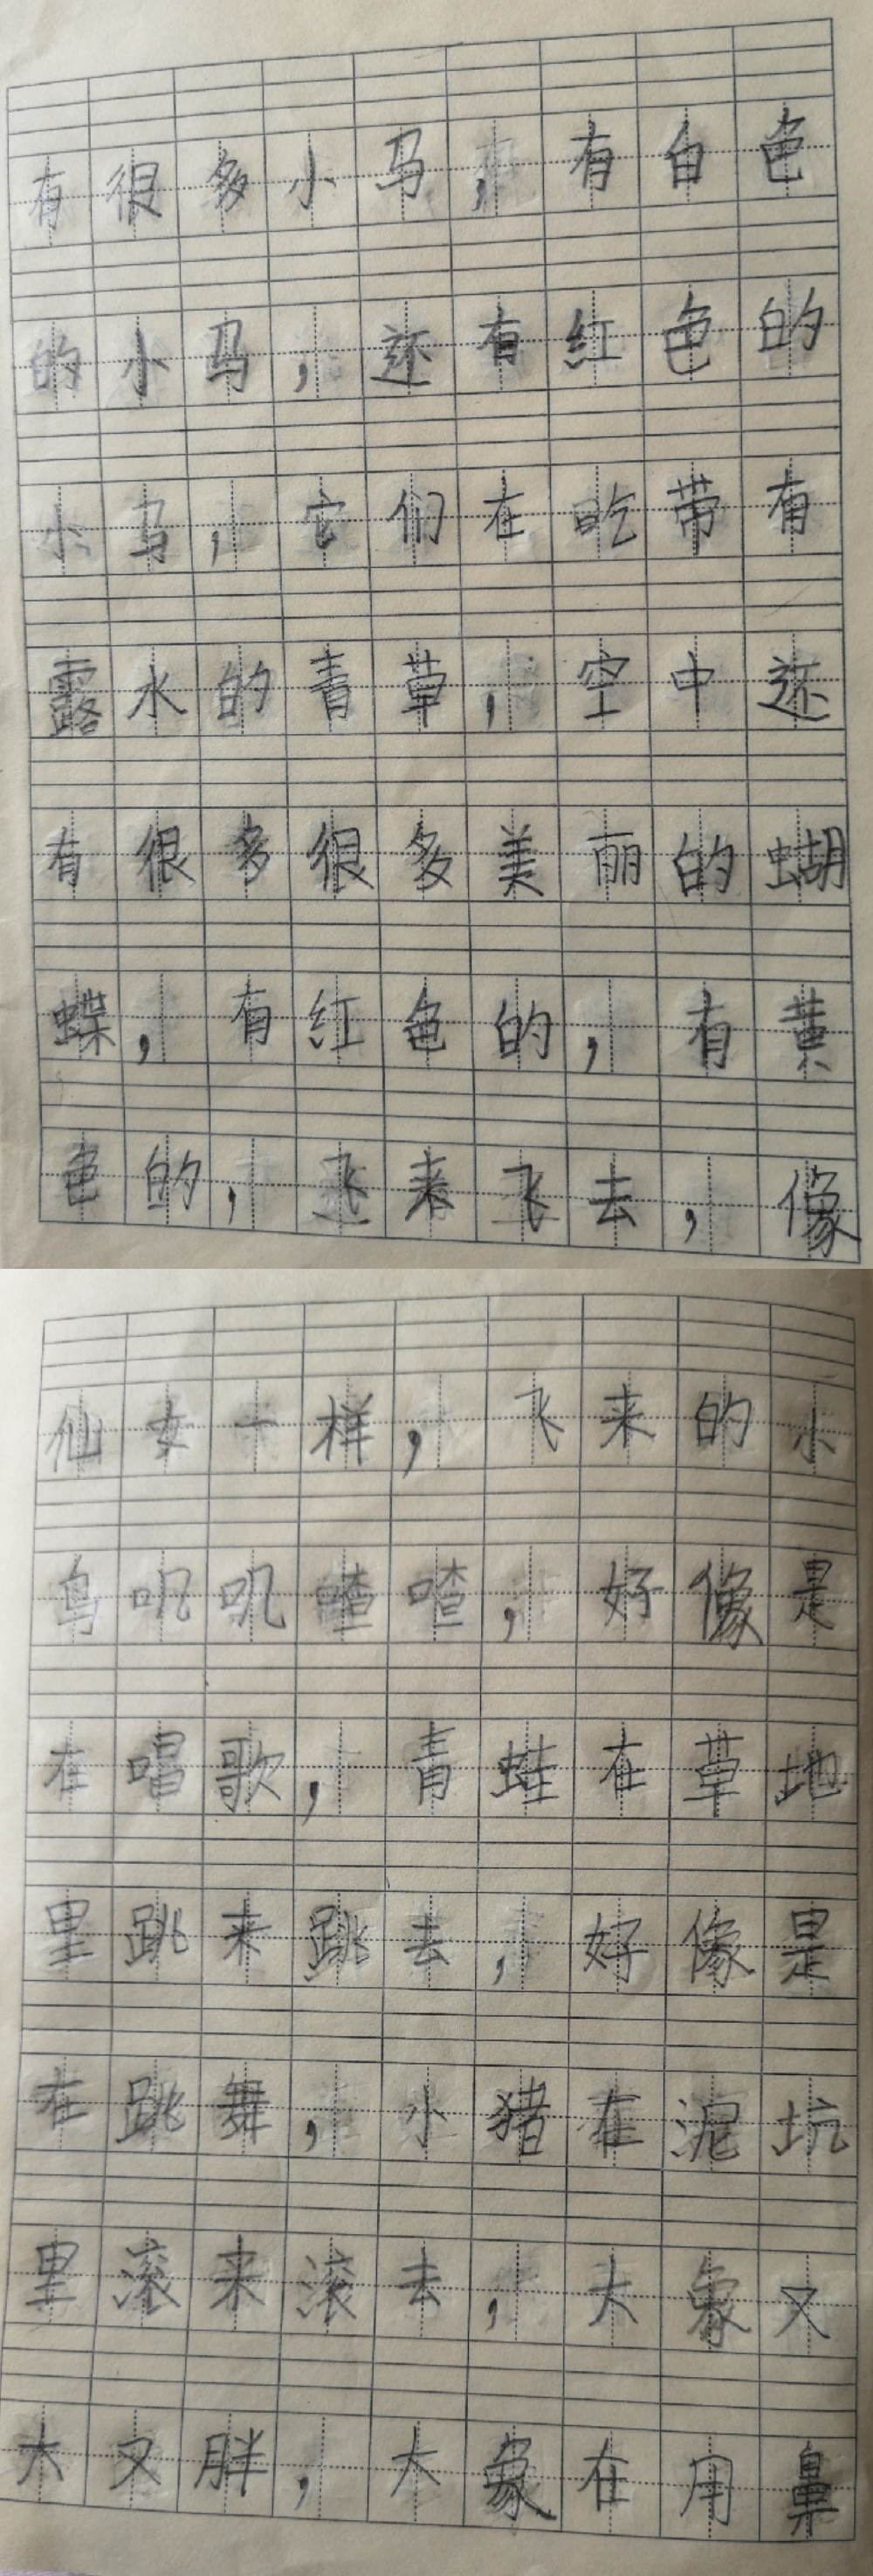 有很多小马，有白色
的小马，还有红色的
小马，它们在吃带有
露水的青草，空中还
有很多很多美丽的蝴
蝶，有红色的，有黄
色的，飞来飞去，像
仙女一样，飞来的小
鸟叽叽喳喳，好像是
在唱歌，青蛙在草地
里跳来跳去，好像是
在跳舞，小猪在泥坑
里滚来滚去，大象又
大又胖，大象在用鼻